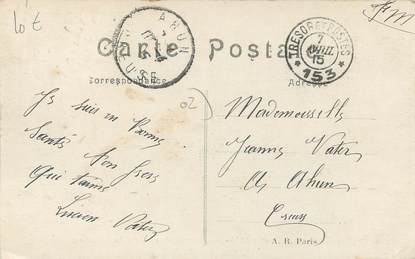 10 €
FM
Carte Postale
Correspondance
Adresse
AHUN
CREUSE
TRESOR ET POSTES
7
AVRIL
15
* 153 *
02
Je suis en Bonne
Santé Ton frere
Qui t'aime
Lucien Vater
Mademoiselle
Jeanne Vater
A Ahun
Creuse
A. R. Paris